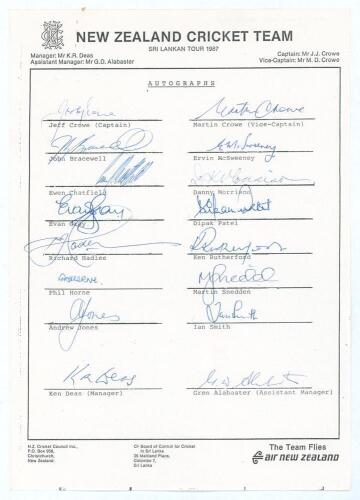 NEW ZEALAND CRICKET TEAM
SRI LANKAN TOUR 1987
Manager: Mr K.R. Deas
Assistant Manager: Mr G.D. Alabaster
Captain: Mr J.J. Crowe
Vice-Captain: Mr M.D. Crowe
AUTOGRAPHS
Martin Crowe
Jeff Crowe (Captain)
Martin Crowe (Vice-Captain)
J Bracewell
E M Sweeney
John Bracewell
Ervin McSweeney
Ewen Chatfield
Danny Morrison
Evan Gray
Evan Gray
Dipak Patel
K Rutherford
Richard Hadlee
Ken Rutherford
P Horne
M Snedden
Phil Horne
Martin Snedden
A Jones
Ian Smith
Andrew Jones
Ian Smith
K R Deas
G D Alabaster
Ken Deas (Manager)
Gren Alabaster (Assistant Manager)
N.Z. Cricket Council Inc.,
P.O. Box 958,
Christchurch,
New Zealand.
C/- Board of Control for Cricket
in Sri Lanka
35 Maitland Place,
Colombo 7,
Sri Lanka
The Team Flies
air new zealand